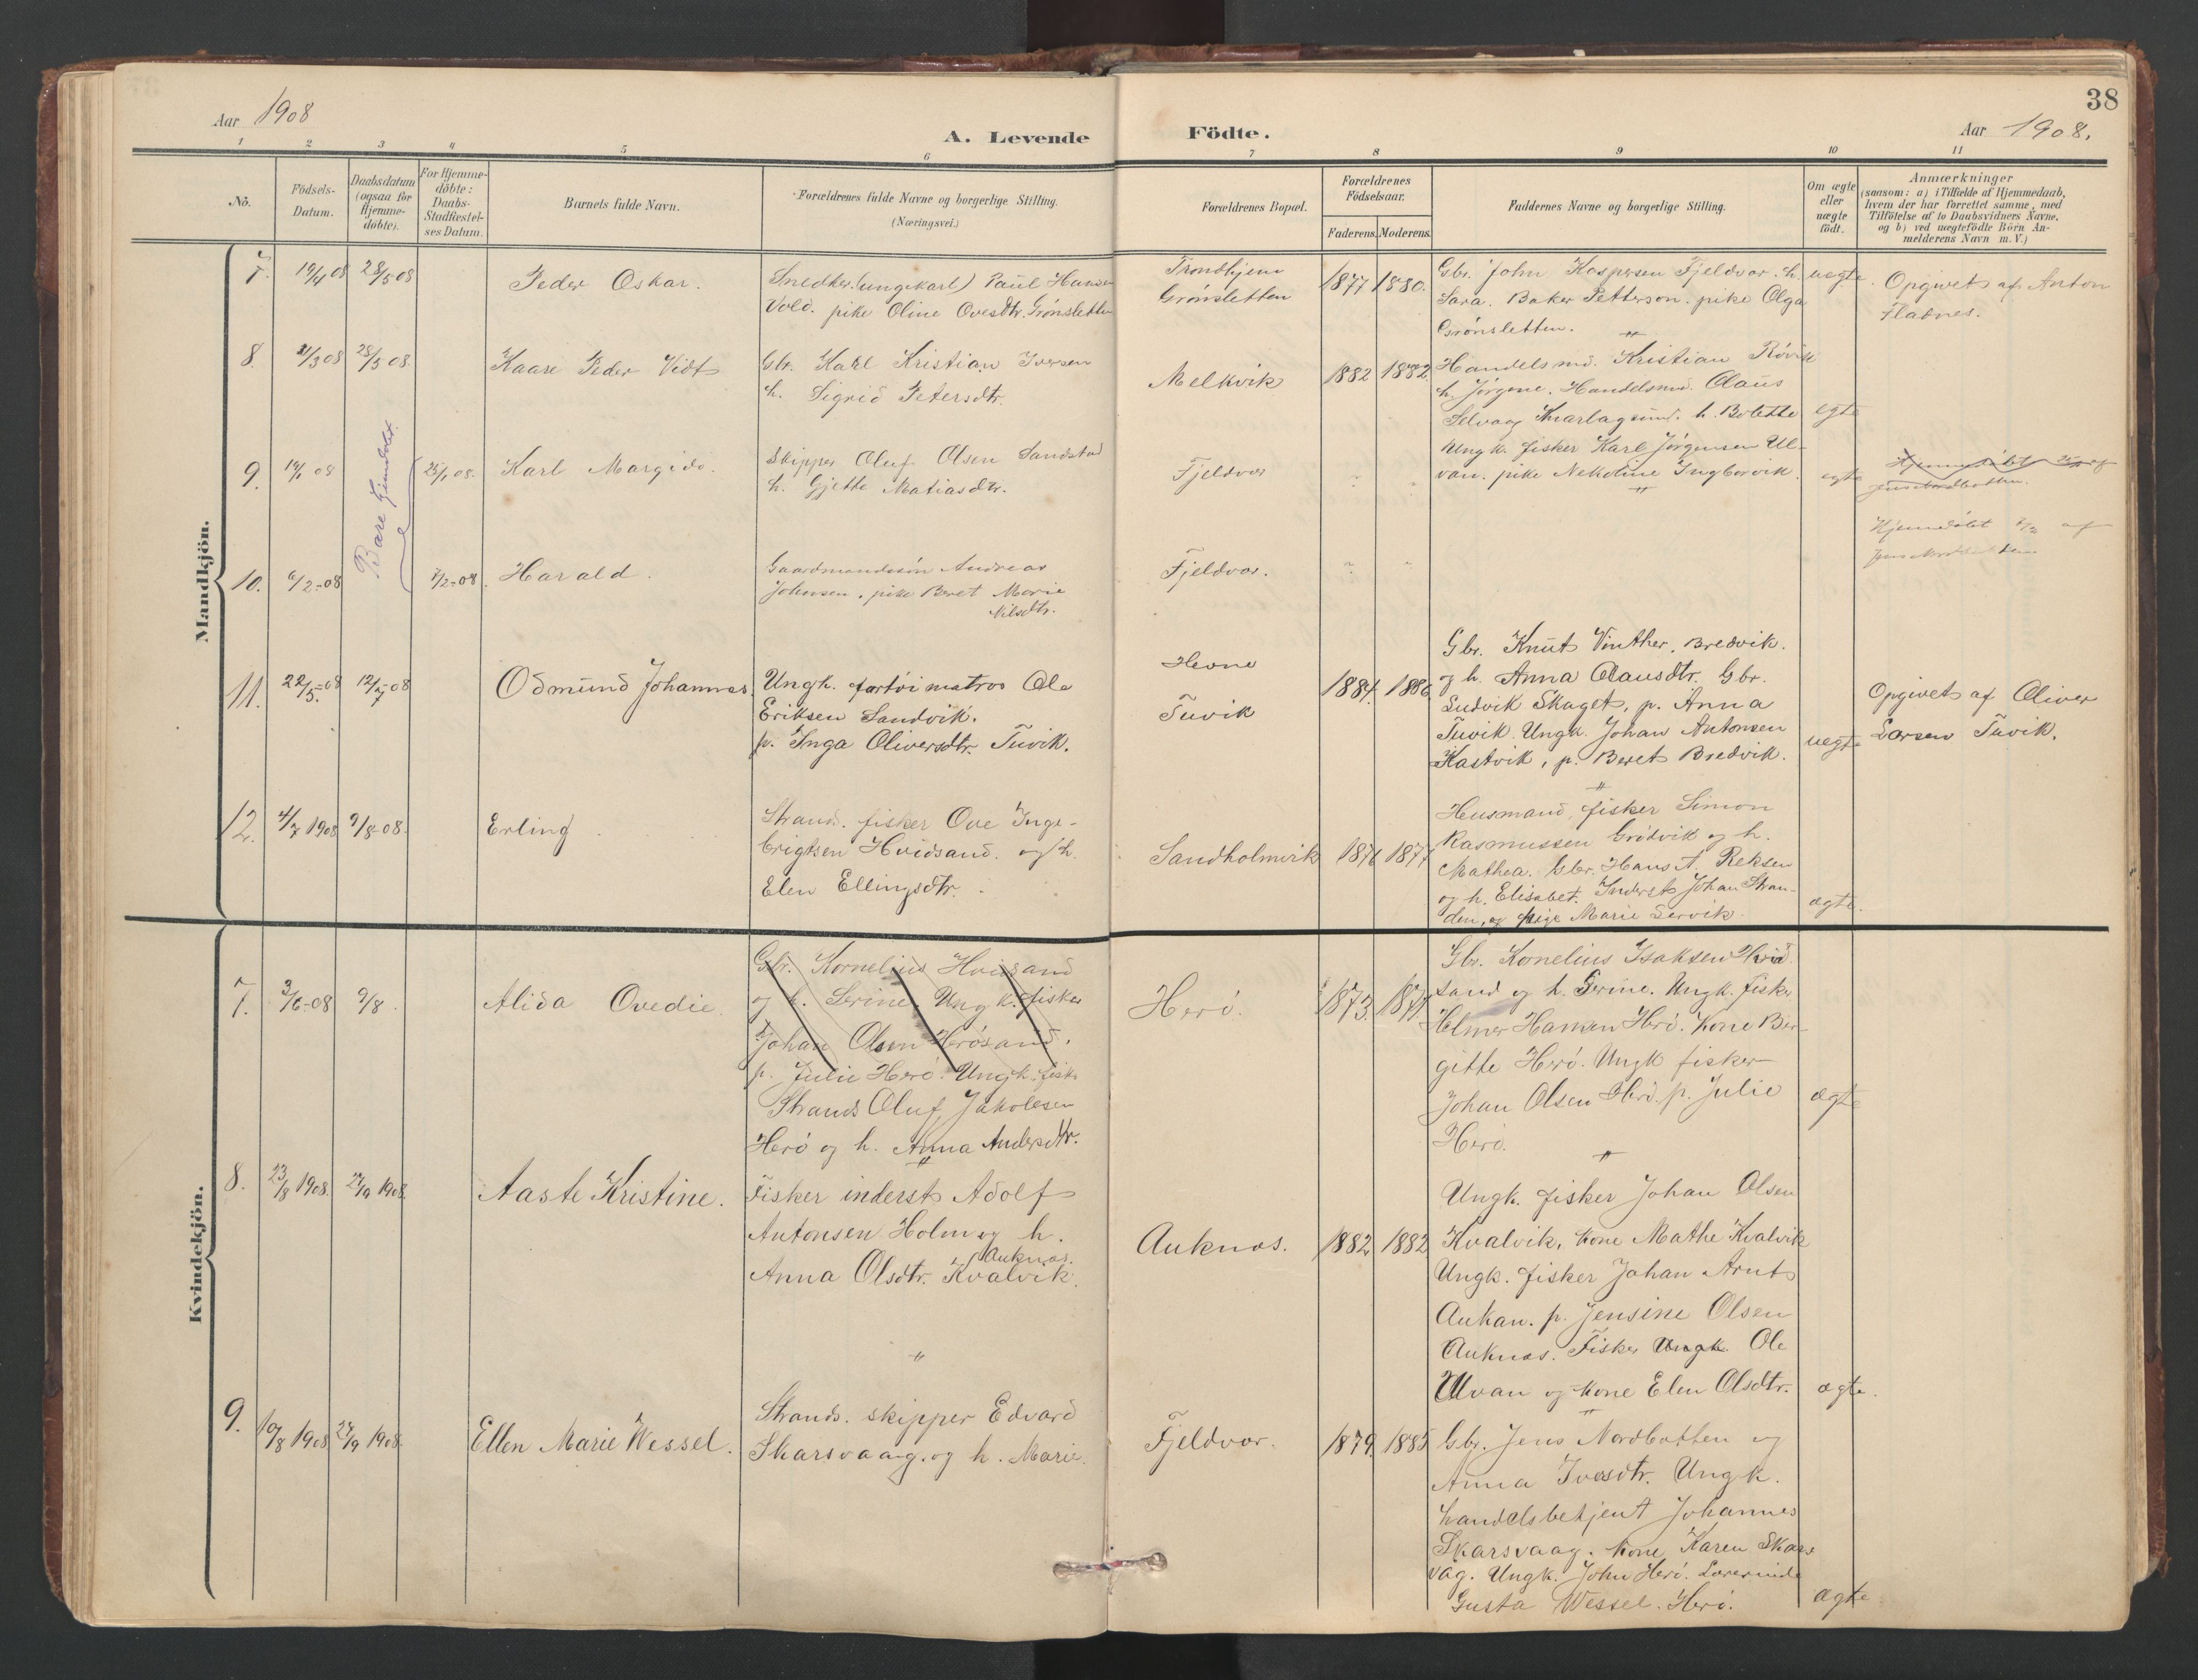 38
Aar 1908
A. Levende Födte.
Aar 1908.
1 2 3 4 5 6 7 8 9 10 11
No.
Födsels-Datum.
Daabsdatum (ogsaa for Hjemme-döbte).
For Hjemme-döbte: Daabs-Stadfæstel-ses Datum.
Barnets fulde Navn.
Forældrenes fulde Navne og borgerlige Stilling.
(Næringsvei.)
Forældrenes Bopæl.
Forældrenes Födselsaar.
Faderens. Moderens.
Faddernes Navne og borgerlige Stilling.
Om ægte eller uægte födt.
Anmærkninger
(saasom: a) i Tilfælde af Hjemmedaab,
hvem der har forrettet samme, med
Tilföielse af to Daabsvidners Navne,
og b) ved uægtefödte Börn An-
melderens Navn m. V.)
Mandkjön.
7. 19/4 08 28/5 08
Peder Oskar.
Snedker (ungekarl) Paul Hansen
Vold. pike Oline Ovesdtr. Grønsletten
Trondhjem
Grønsletten
1877 1880.
Gbr. John Kaspersen Fjeldvær. h.
Sara. Baker Petterson. pike Olga
Grønsletten.
uegte
Opgivet af Anton
Flatnes.
8. 21/3 08 28/5 08.
Kaare Peder Vidt
Gbr. Karl Kristian Iversen
h. Sigrid Petersdtr.
Melkvik
1882 1882
Handelsmd. Kristian Røvik
h. Jørgene. Handelsmd. Claus
Selvaag Knarlagsund. h. Bolette
egte
Bare Hjemdøbt
9. 19/1 08 25/1 08.
Karl Margido.
Skipper Oluf Olsen Sandstad
h. Gjette Matiasdtr.
Fjeldvær
Ungk. fisker Karl Jørgensen Ul-
van. pike Nekoline Ingborvik.
egte
Hjemmedøbt af
Jens Nordbotten.
10. 6/2-08 7/2-08.
Harald.
Gaardmandssøn Andreas
Johnsen, pike Beret Marie
Nilsdtr.
Fjeldvær.
Hjemdøbt 7/2 af
Jens Nordbotten
11. 22/5-08 12/7-08
Odmund Johannes.
Ungk. fartøimatros Ole
Eriksen Sandvik.
p. Inga Oliversdtr. Tuvik.
Hevne
Tuvik
1884. 1886
Gbr. Knut Vinther, Bredvik.
og h. Anna Olausdtr. Gbr.
Ludvik Skaget, p. Anna
Tuvik. Ungk. Johan Antonsen
Kastvik, p. Beret Bredvik.
uegte
Opgivet af Oliver
Larsen Tuvik.
12. 4/7 1908 9/8-08.
Erling
Strands. fisker Ove Inge-
brigtsen Hvidsand. og h.
Elen Ellingsdtr.
Sandholmvik
1876 1877
Husmand, fisker Simon
Rasmussen Grødvik og h.
Mathea. Gbr. Hans A. Reksen
og h. Elisabet. Inderst Johan Stran-
den, og pige Marie Servik.
ægte.
Kvindekjön.
7. 3/6-08 9/8.
Alida Ovedie.
Gbr. Kornelius Hvidsand
og h. Serine. Ungk. fisker
Johan Olsen Herøsand.
p. Julie Herø. Ungk. fisk
Strands Oluf Jakobsen
Herø og h. Anna Andersdtr.
Herø.
1873. 1871.
Gbr. Kornelius Isaksen Hvid
sand og h. Serine. Ungk. fisker
Helmer Hansen Herø. Kone Ber-
gitte Herø. Ungk fisker
Johan Olsen Herø. p. Julie
Herø.
ægte
8. 23/8 1908. 27/9 1908
Aaste Kristine.
Fisker inderst Adolf
Antonsen Holm og h.
Auknæs.
Anna Olsdtr. Kvalvik.
Auknæs.
1882 1882
Ungk. fisker Johan Olsen
Kvalvik, kone Mathe Kvalvik
Ungk. fisker Johan Arnt
Aukan. p. Jensine Olsen
Auknæs. Fisker Ungk. Ole
Ulvan og kone Elen Olsdtr.
ægte.
9. 10/8 1908 27/9 1908.
Ellen Marie Wessel.
Strands. skipper Edvard
Skarsvaag. og h. Marie.
Fjeldvær.
1879. 1885
Gbr. Jens Nordbotten og
Anna Ivesdtr. Ungk.
handelsbetjent Johannes
Skarsvaag. kone Karen Skars
våg. Ungk. John Herø. Lærerinde
Gusta Wessel. Herø.
ægte